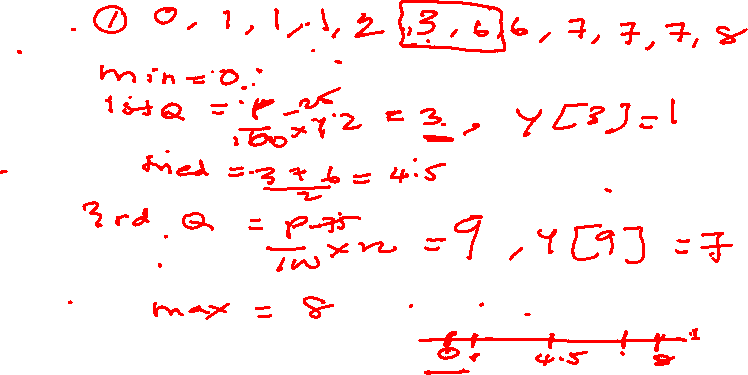 ① 0, 1, 1, 1, 2, 3, 6, 6, 7, 7, 7, 8
min = 0
1st Q = P25/100 × 12 = 3, Y[3] = 1
med = 3+6/2 = 4.5
3rd Q = P75/100 × n = 9, Y[9] = 7
max = 8
0 4.5 8